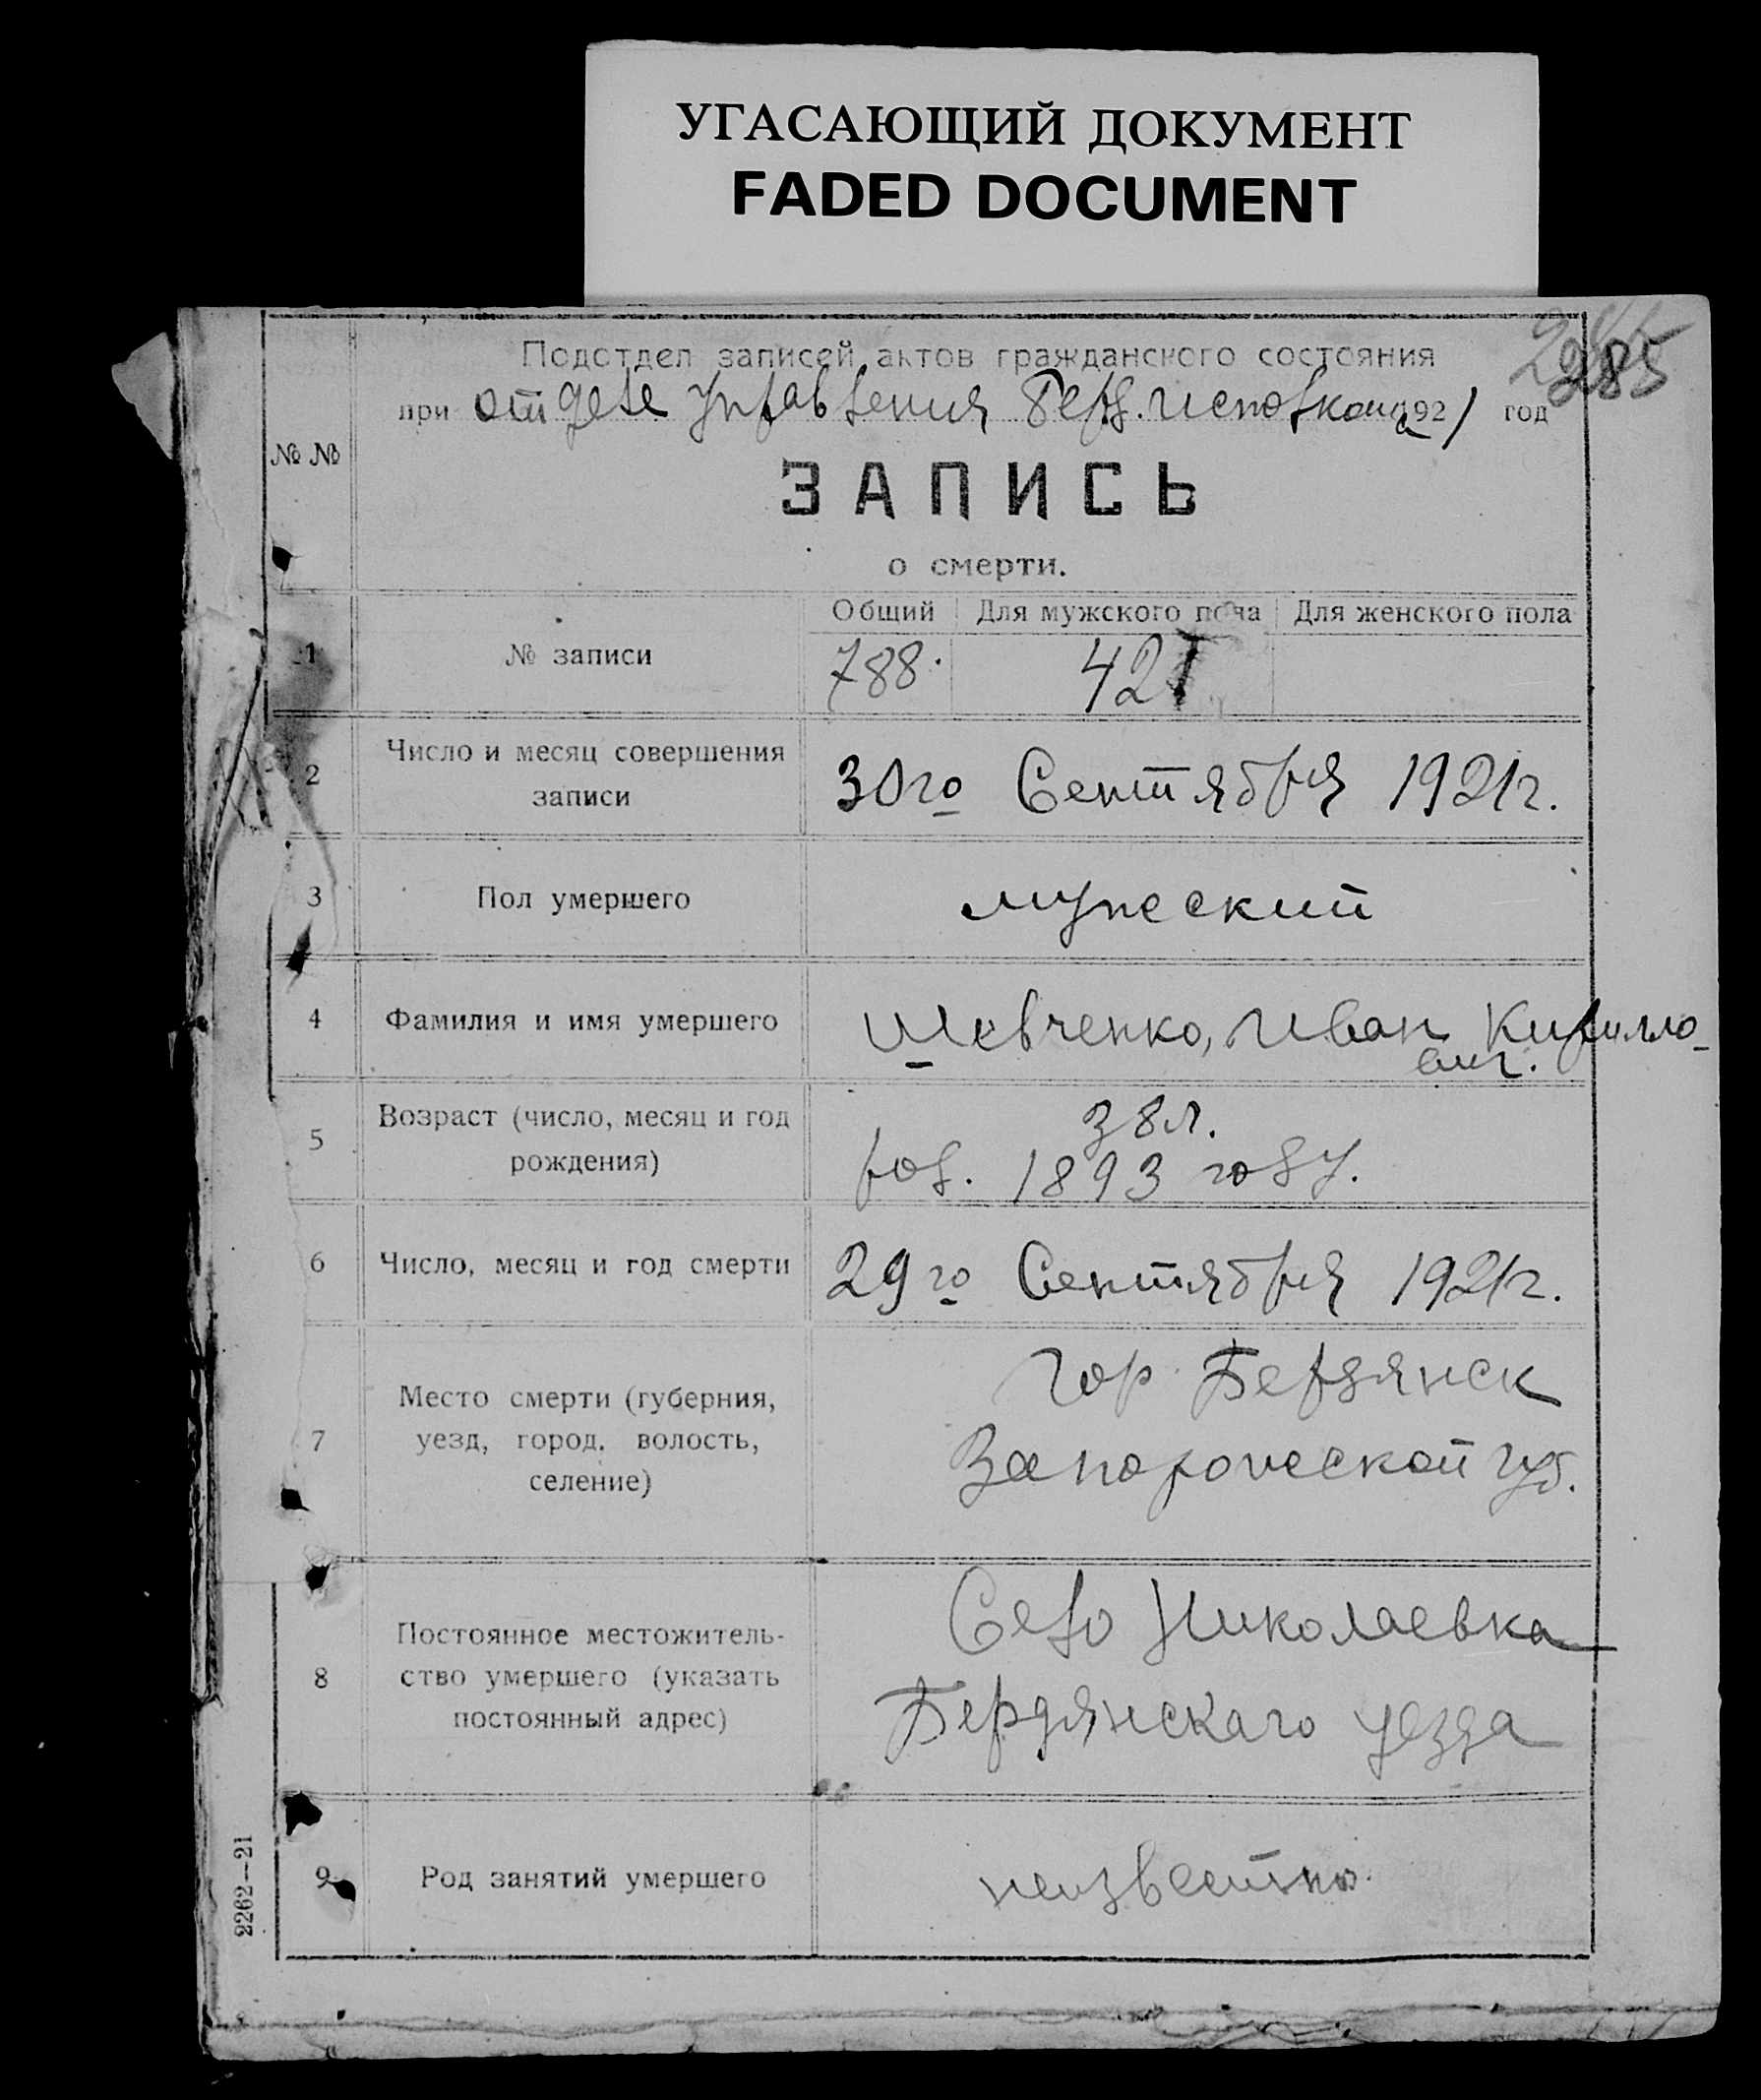 УГАСАЮЩИЙ ДОКУМЕНТ
FADED DOCUMENT
285
Подотдел записей актов гражданского состояния
при отделе управления Берд. исполкома 1921 год
№ №
ЗАПИСЬ
о смерти.
Общий Для мужского пола Для женского пола
1 № записи 788. 421
2 Число и месяц совершения
записи
30го Сентября 1921г.
3 Пол умершего мужеский
4 Фамилия и имя умершего Шевченко, Иван Кирилло-
вич.
5 Возраст (число, месяц и год
рождения)
38л.
род. 1893 году.
6 Число, месяц и год смерти 29го Сентября 1921г.
7 Место смерти (губерния,
уезд, город, волость,
селение)
Гор. Бердянск
Запорожеской губ.
8 Постоянное местожитель-
ство умершего (указать
постоянный адрес)
Село Николаевка
Бердянскаго уезда
9 Род занятий умершего неизвестно.
2262—21